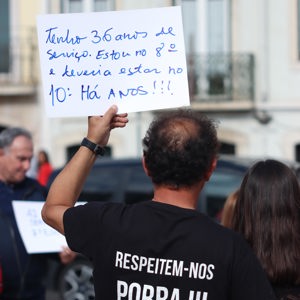 Tenho 36 anos de
serviço. Estou no 8º
e deveria estar no
10º. Há ANOS!!!
RESPEITEM-NOS
PORRA !!!